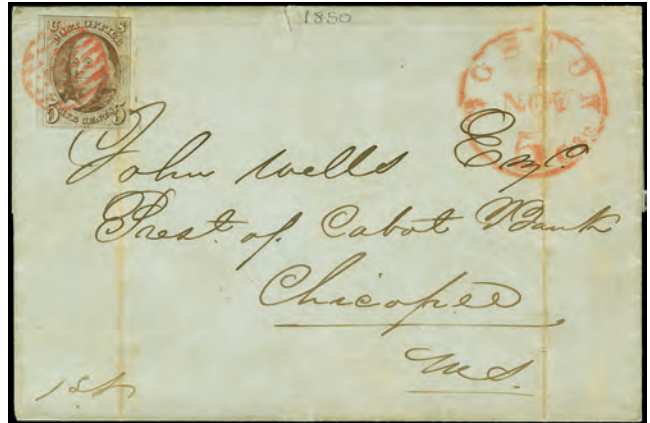 1850
U S
POST OFFICE
5 5
NOV
5
John Wells Esq.
Prest. of. Cabot Bank
Chicopee
Ms.